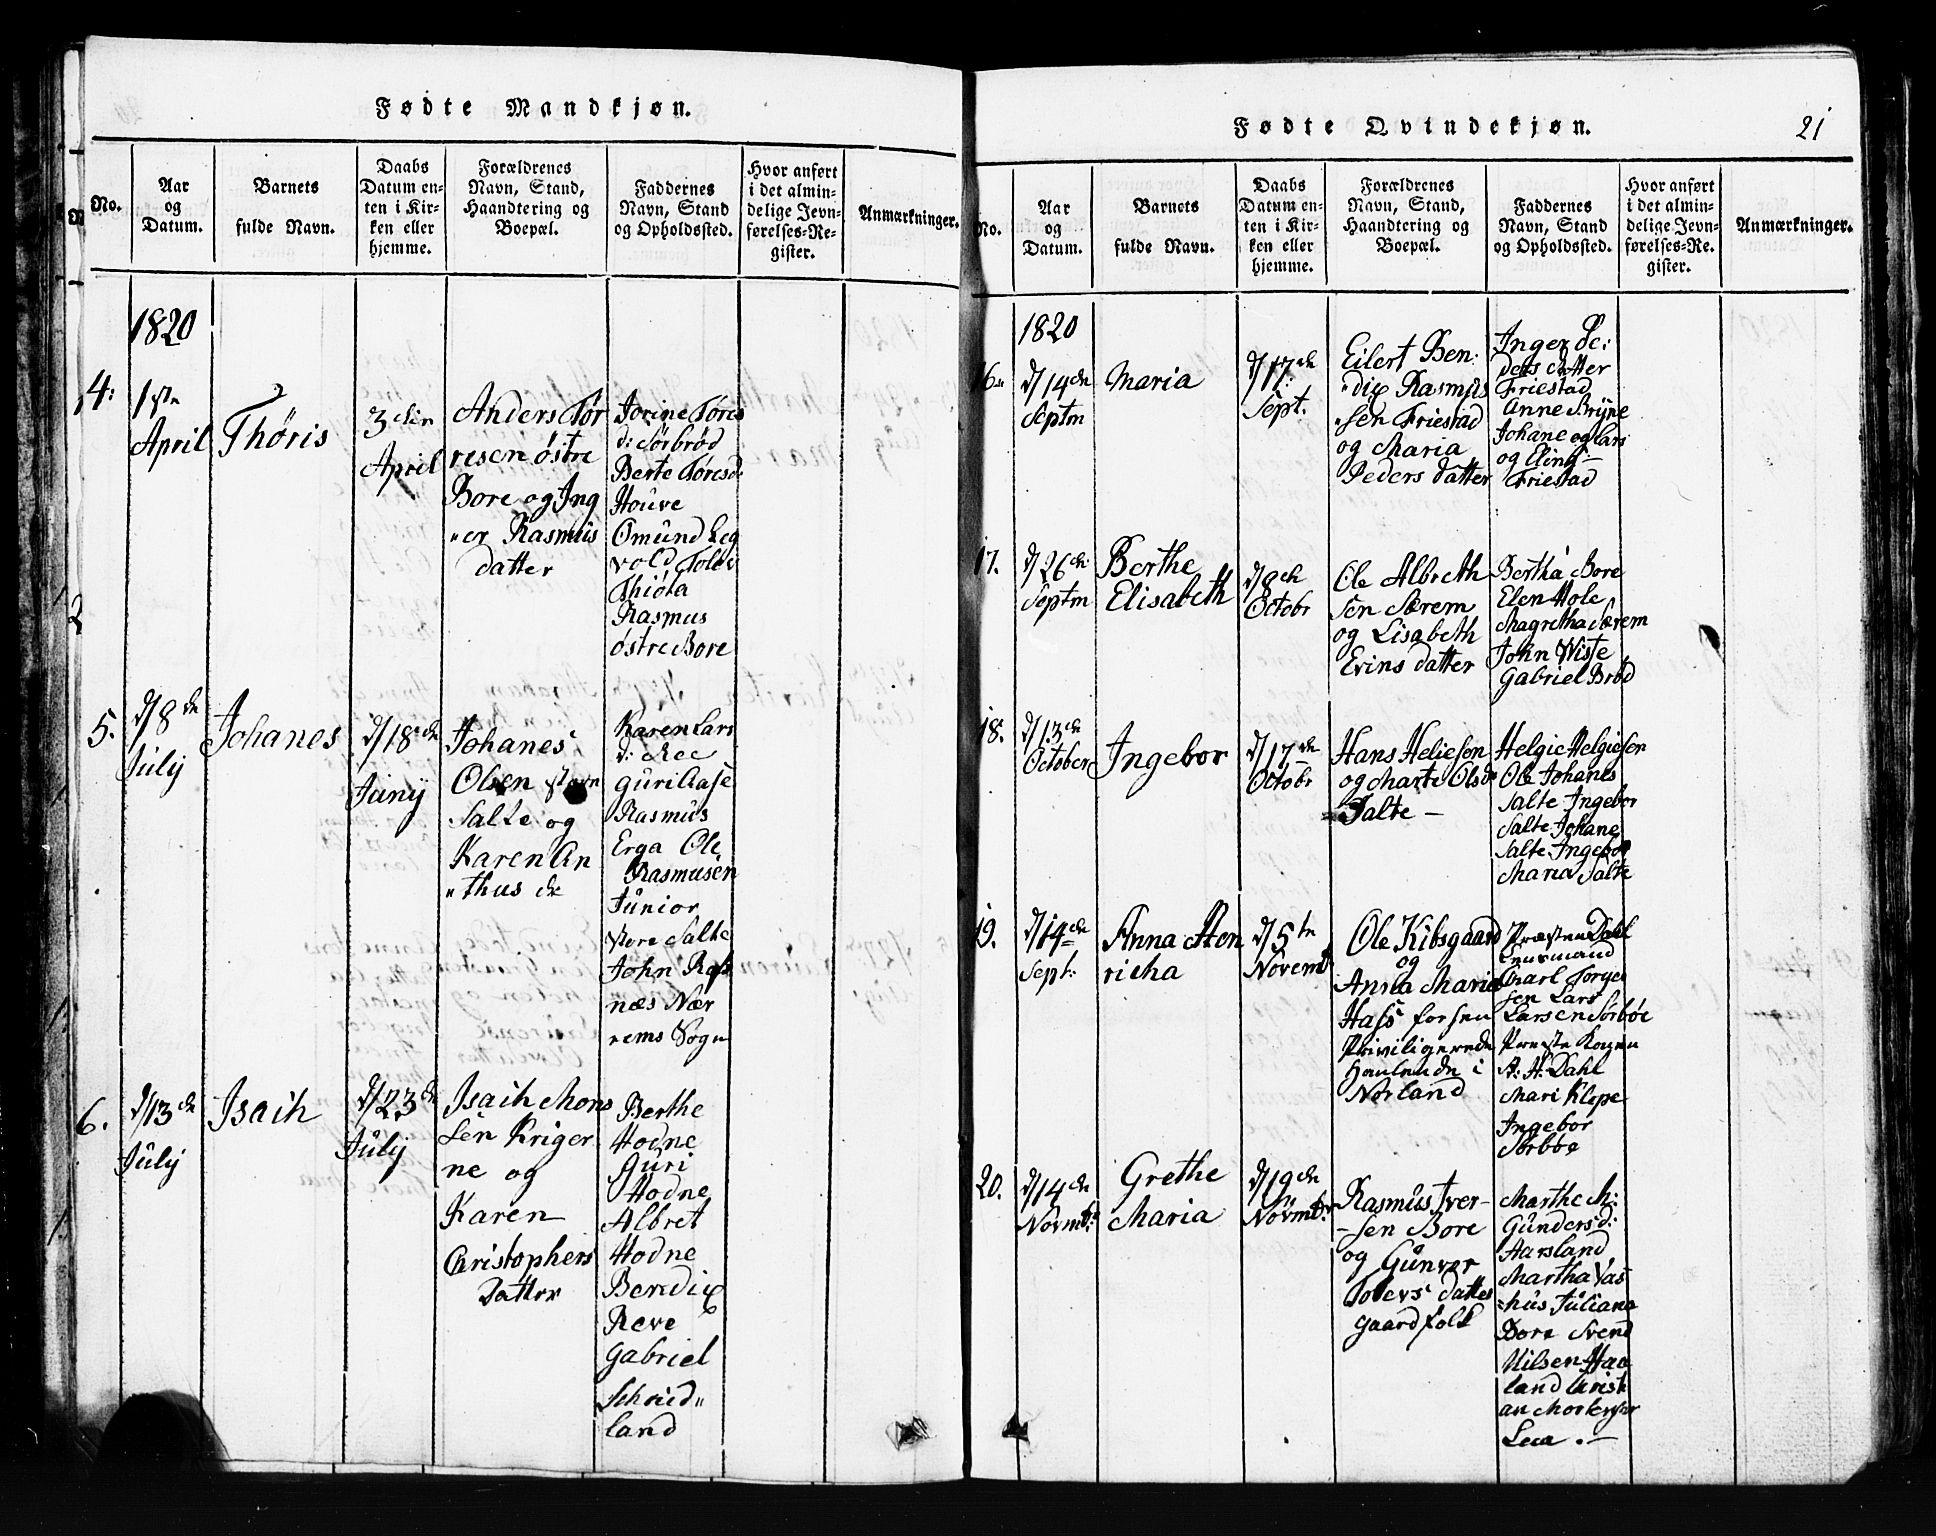 Fødte Mandkjøn.
No.
Aar
og
Datum.
Barnets
fulde Navn.
Daabs
Datum en-
ten i Kir-
ken eller
hjemme.
Forældrenes
Navn, Stand,
Haandtering og
Boepæl.
Faddernes
Navn, Stand
og Opholdssted.
Hvor anført
i det almin-
delige Jevn-
førelses-Re-
gister.
Anmærkninger.
1820
4:
1ste
April
Thøris
3die
April
Anders Tør
resen østre
Bore og Ing
"er Rasmus
datter
Jorine Tøres
d: Sørbrød
Berte Tøresd.
Houve
Omund Leg
vold Toler
Thiøta
Rasmus
østre Bore
5.
d/8de
July
Johanes
d/18de
Juny
Johanes
Olsen
Salte og
Karen An
"thus dr
Karen Lars
d: Ree
Guri Aase
Rasmus
Erga Ole
Rasmusen
Junior
Store Salte
John Ref
næs Nær
rems Sogn
6.
d/13de
July
Isaih
d/23de
July
Isaih Mons
sen Kriger
ne og
Karen
Christophers
Datter
Berthe
Hodne
Guri
Hodne
Albret
Hodne
Bendix
Reve
Gabriel
Schied"
land
Fødte Qvindekjøn.
21
No.
Aar
og
Datum.
Barnets
fulde Navn.
Daabs
Datum en-
ten i Kir-
ken eller
hjemme.
Forældrenes
Navn, Stand,
Haandtering og
Boepæl.
Faddernes
Navn, Stand
og Opholdssted.
Hvor anført
i det almin-
delige Jevn-
førelses-Re-
gister.
Anmærkninger.
1820
16.
d/14de
Septm
Maria
d/17de
Sept.
Eilert Ben:
"dix Rasmus
"sen Friestad
og Maria
Peders datter
Inger Pe:
ders datter
Friestad
Anne Bryne
Johane og Lars
og Eling
Friestad
17.
d/26de
Septm
Berthe
Elisabeth
d/8de
Octobr
Ole Albreth
sen Særem
og Lisabeth
Evins datter
Bertha Bore
Elen Hole
Magretha Særem
John Wiste
Gabriel Brød
18.
d/13de
October
Ingebor
d/17de
Octobr
Hans Heliesen
og Marte Olsdr
Salte —
Helgie Helgiesen
Ole Johanes
Salte Ingebor
Salte Johane
Salte Ingebor
Maria Salte
19.
d/19de
Sept:
Anna Hen
richa
d/5te
Novemb
Ole Kibsgaard
og
Anna Maria
Hass forhen
Priviligerede
Handlende i
Norland
Præsten Dahl
Lensmand
Charl Torger
sen Lars
Larsen Sørbøe
Præste Konen
A: H: Dahl
Mari Klepe
Ingebor
Sørbøe
20.
d/14de
Novmb:
Grethe
Maria
d/19de
Novmb:
Rasmus Iver-
-sen Bore
og Gunver
Tolevs datter
gaardfolk
Marthe M:
Gunders d:
Aarsland
Martha Vas
"hus Juliana
Bore Svend
Nilsen Haa
land Christi
an Mortensen
Lea . —